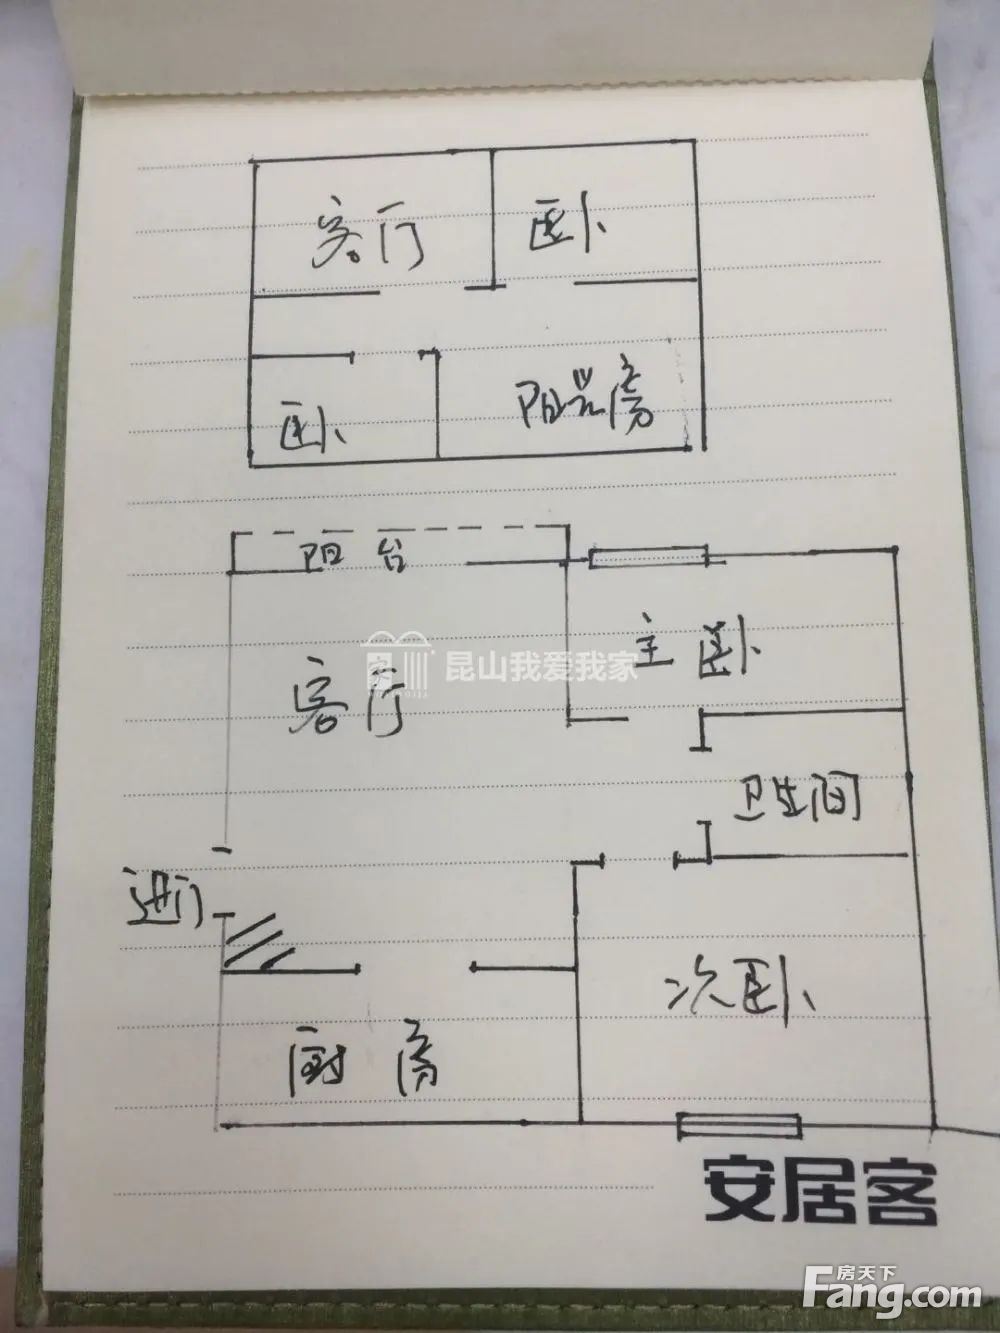 客厅 卧
卧 阳光房
阳台
主卧
客厅
卫生间
进门
次卧
厨房
昆山我爱我家
安居客
房天下
Fang.com